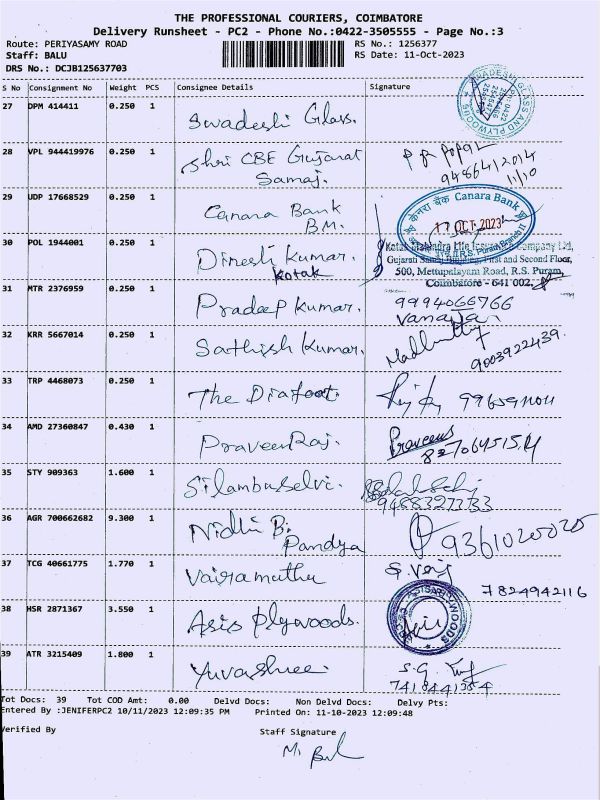 THE PROFESSIONAL COURIERS, COIMBATORE
Delivery Runsheet - PC2 - Phone No.:0422-3505555 - Page No.:3
Route: PERIYASAMY ROAD RS No.: 1256377
Staff: BALU RS Date: 11-Oct-2023
DRS No.: DCJB125637703
S No Consignment No Weight PCS Consignee Details Signature
27 DPM 414411 0.250 1 Swadeshi Glass.
28 VPL 944419976 0.250 1 Shri CBE Gujarat Samaj.
9486412014
11/10
29 UDP 17668529 0.250 1 Canara Bank B.M.
केनरा बैंक Canara Bank
17 OCT 2023
30 POL 1944001 0.250 1 Dinesh Kumar. Kotak
Kotak Mahindra Life Insurance Company Ltd,
Gujarati Samaj Building, First and Second Floor,
500, Mettupalayam Road, R.S. Puram,
Coimbatore - 641 002.
31 MTR 2376959 0.250 1 Pradeep Kumar. 9994066766
Vanaja
32 KRR 5667014 0.250 1 Sathish Kumar. 9003922439.
33 TRP 4468073 0.250 1 The Diafoot.
34 AMD 27360847 0.430 1 Praveen Raj. Praveen
35 STY 909363 1.600 1 Silambuselvi.
36 AGR 700662682 9.300 1 Nidhi B. Pandya 9361020025
37 TCG 40661775 1.770 1 Vairamuthu
7824942116
38 HSR 2871367 3.550 1 Asis Plywoods.
39 ATR 3215409 1.800 1 Yuvashree. S.G.
7418441354
Tot Docs: 39 Tot COD Amt: 0.00 Delvd Docs: Non Delvd Docs: Delvy Pts:
Entered By :JENIFERPC2 10/11/2023 12:09:35 PM Printed On: 11-10-2023 12:09:48
Verified By Staff Signature